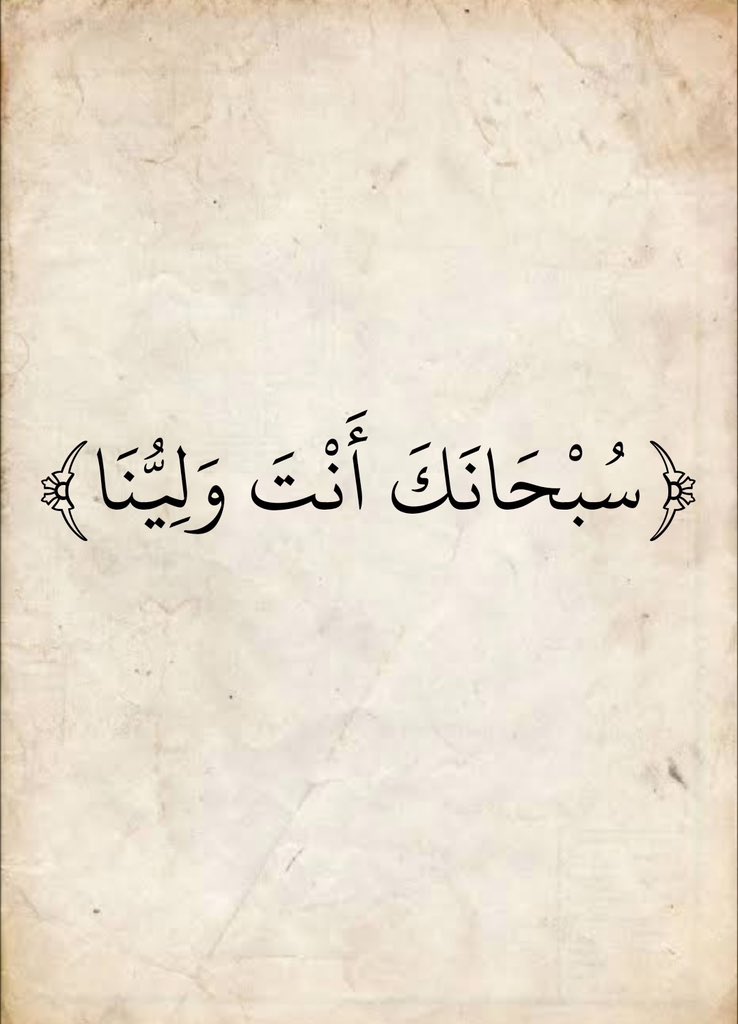 ﴿سُبْحَانَكَ أَنْتَ وَلِيُّنَا﴾